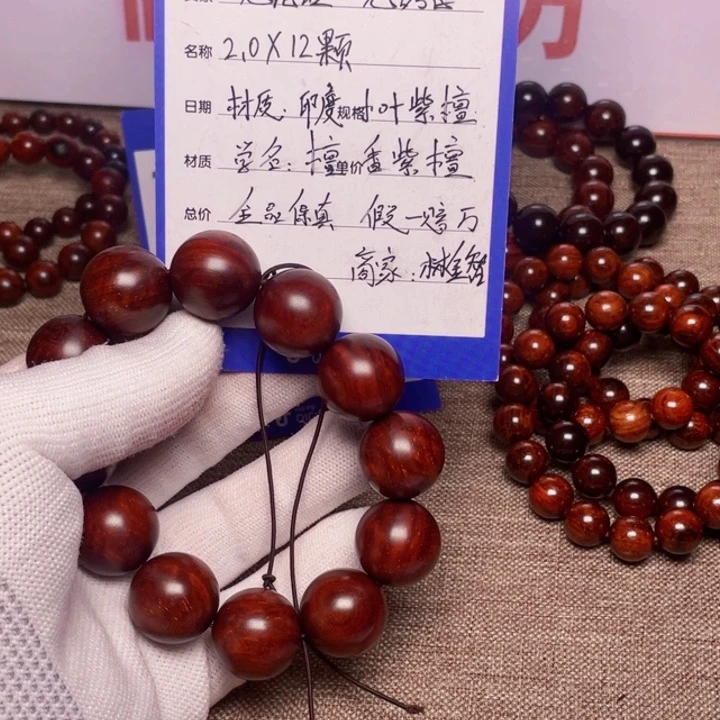 名称 2.0X12颗
日期 材质:印度规格小叶紫檀
材质 学名:檀单价香紫檀
总价 全品保真 假一赔万
商家: